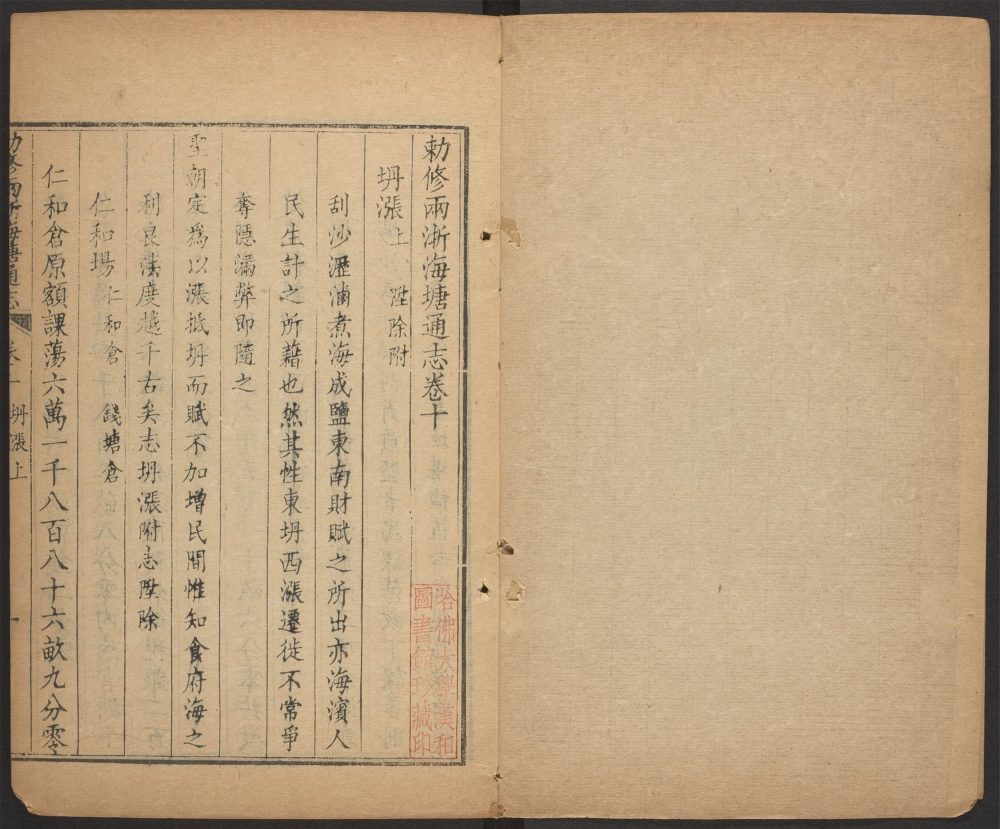 勅修兩浙海塘通志卷十
坍漲上 陞除附
刮沙瀝滷煮海成鹽東南財賦之所出亦海濱人
民生計之所藉也然其性東坍西漲遷徙不常爭
奪隱漏弊即隨之
聖朝定為以漲抵坍而賦不加增民間惟知食府海之
利良法度越千古矣志坍漲附志陞除
仁和場 仁和倉 錢塘倉
仁和倉原額課蕩六萬一千八百八十六畝九分零
海塘通志
坍漲上
一
哈佛大學漢和
圖書館珍藏印